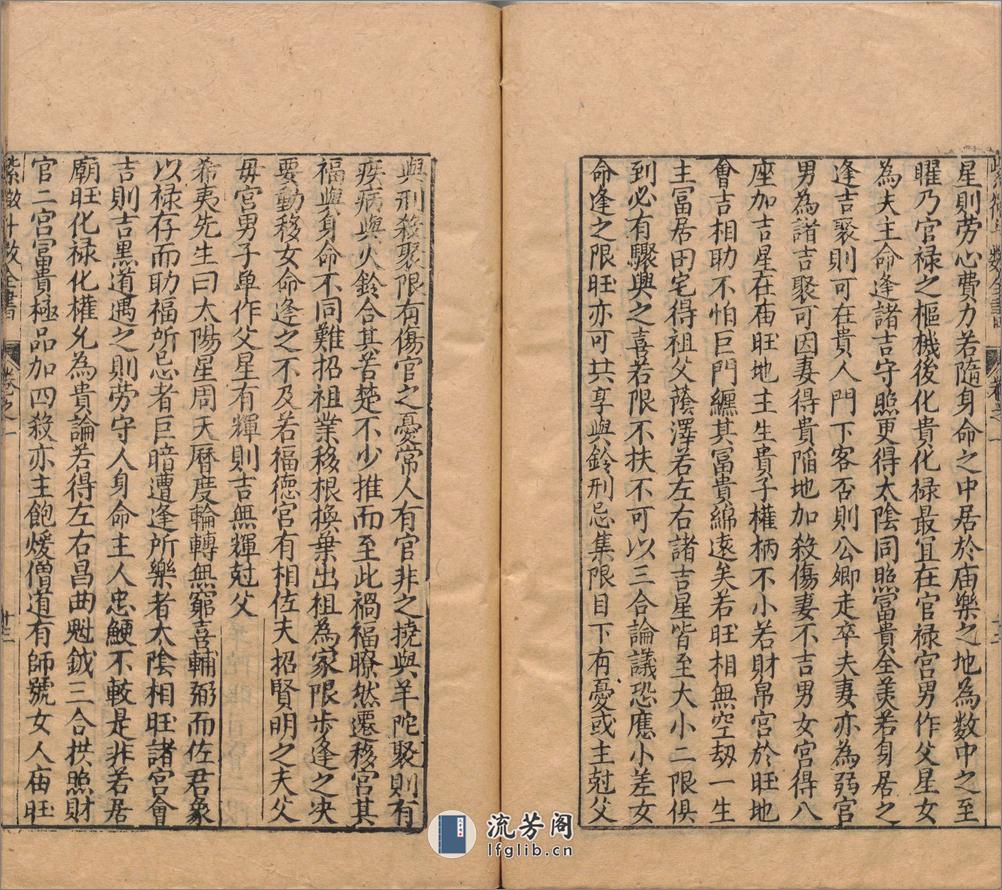 星則劳心費力若隨身命之中居於庙樂之地為数中之至
曜乃官禄之樞機後化貴化禄最宜在官禄宮男作父星女
為夫主命逢諸吉守照更得太陰同照富貴全美若身居之
逢吉聚則可在貴人門下客否則公卿走卒夫妻亦為弱宮
男為諸吉聚可因妻得貴陥地加殺傷妻不吉男女宮得八
座加吉星在庙旺地主生貴子權柄不小若財帛宮於旺地
會吉相助不怕巨門纏其冨貴綿遠矣若旺相無空刼一生
主冨居田宅得祖父蔭澤若左右諸吉星皆至大小二限俱
到必有驟興之喜若限不扶不可以三合論議恐應小差女
命逢之限旺亦可共享與鈴刑忌集限目下有憂或主尅父
紫微斗数全書 卷之一 廿三
與刑殺聚限有傷官之憂常人有官非之撓與羊陀聚則有
疾病與火鈴合其苦楚不少推而至此禍福暸然遷移宮其
福與身命不同難招祖業移根換葉出祖為家限步逢之决
要動移女命逢之不及若福德宮有相佐夫招賢明之夫父
母宮男子單作父星有輝則吉無輝尅父
希夷先生曰太陽星周天曆度輪轉無窮喜輔弼而佐君象
以禄存而助福所忌者巨暗遭逢所樂者太陰相旺諸宮會
吉則吉黒道遇之則劳守人身命主人忠鯁不較是非若居
廟旺化禄化權允為貴論若得左右昌曲魁鉞三合拱照財
官二宮富貴極品加四殺亦主飽煖僧道有師號女人庙旺
流芳阁
lfglib.cn